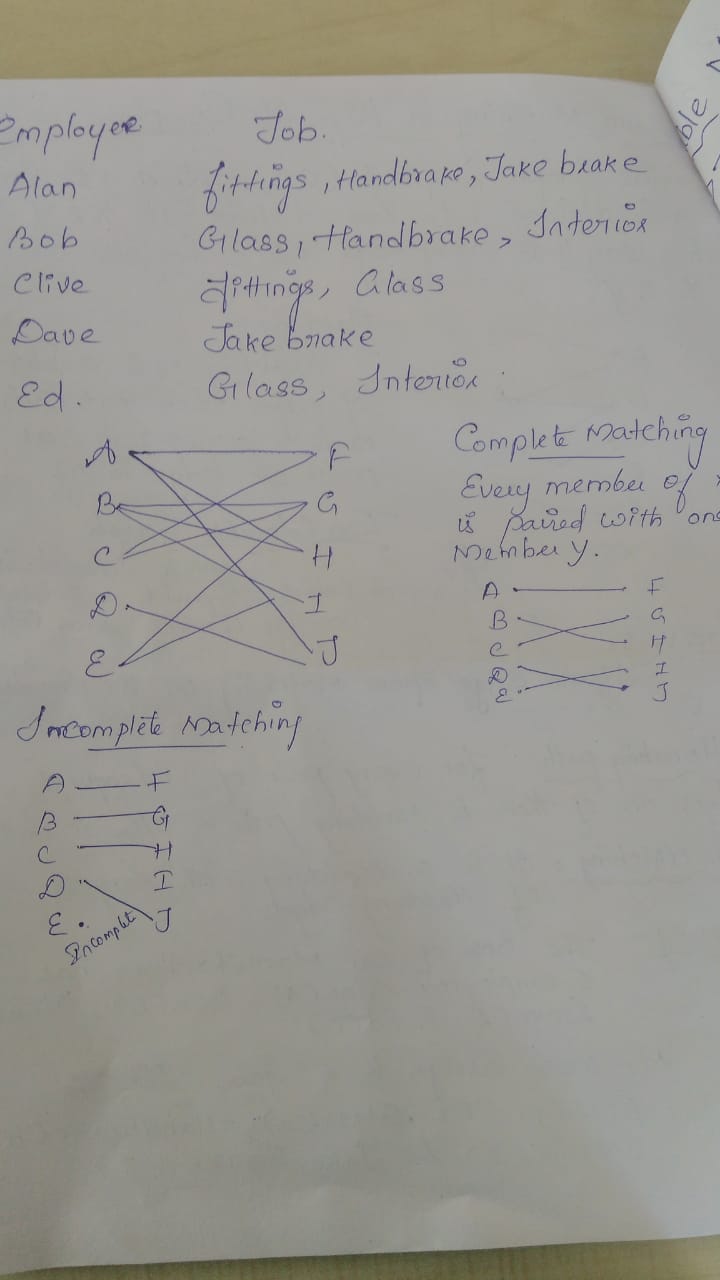 Employee Job.
Alan fittings, Handbrake, Jake brake
Bob Glass, Handbrake, Interior
Clive fittings, Glass
Dave Jake brake
Ed. Glass, Interior
A F
B G
C H
D I
E J
Complete Matching
Every member of
is paired with one
Member y.
A F
B G
C H
D I
E J
Incomplete Matching
A F
B G
C H
D I
E J
Incomplet